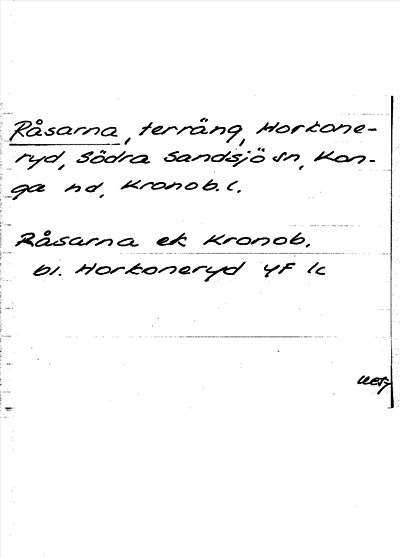 Råsarna, terräng, Horkone-
ryd, Södra Sandsjö sn, Kon-
ga hd, Kronob. l.
Råsarna ek Kronob.
bl. Horkoneryd 4F 1c